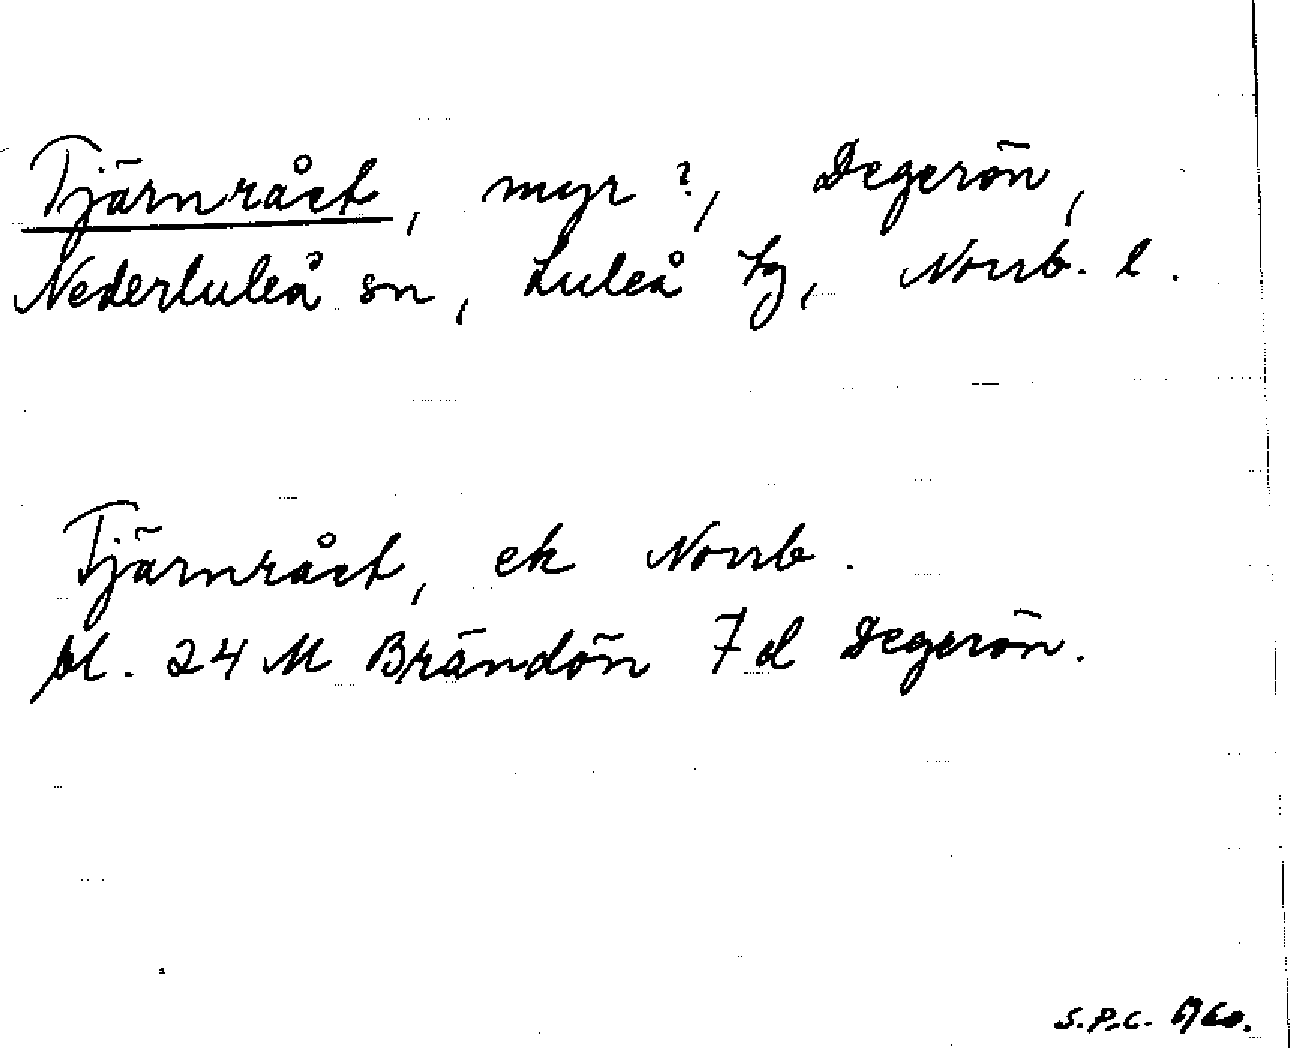 Tjärnrået, myr ?, Degerön,
Nederluleå sn, Luleå tg, Norrb. l.
Tjärnrået, ek Norrb.
bl. 24 M Brändön 7 d Degerön.
S.P.C.